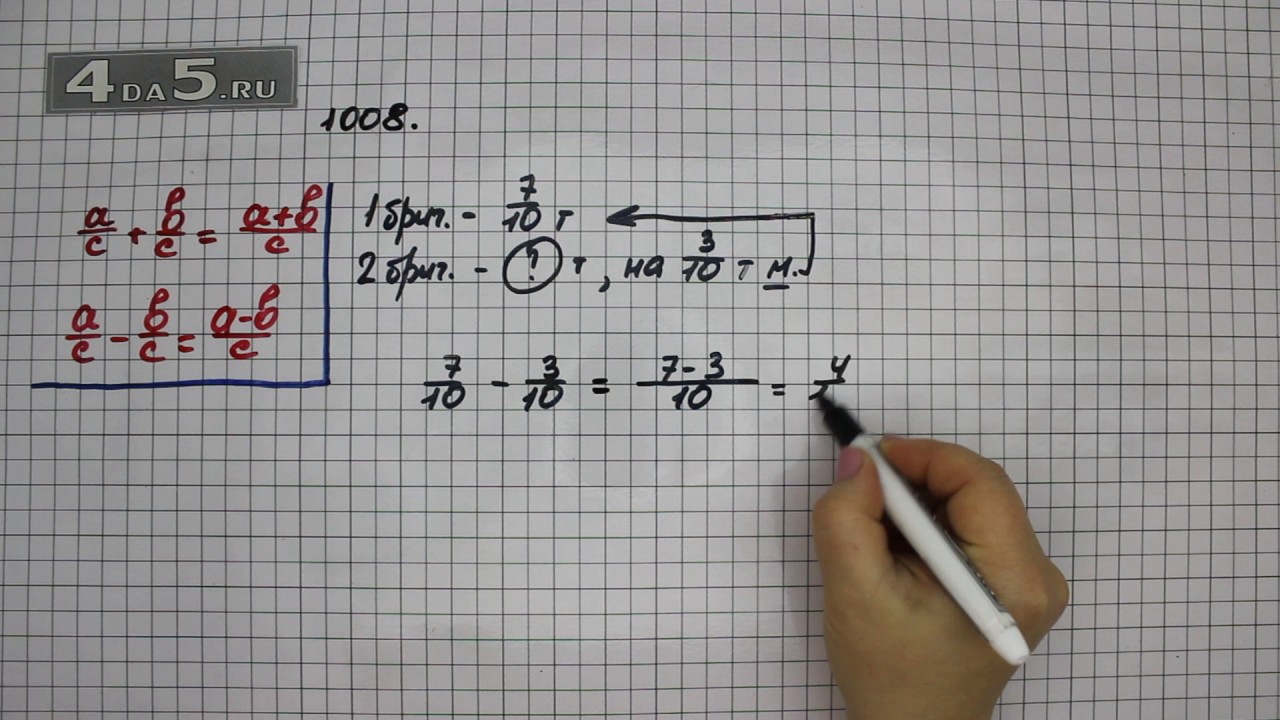 4DA5.RU
1008.
a/c + b/c = a+b/c
a/c - b/c = a-b/c
1 бриг. - 7/10 т
2 бриг. - ? т, на 3/10 т м.
7/10 - 3/10 = 7-3/10 = 4/